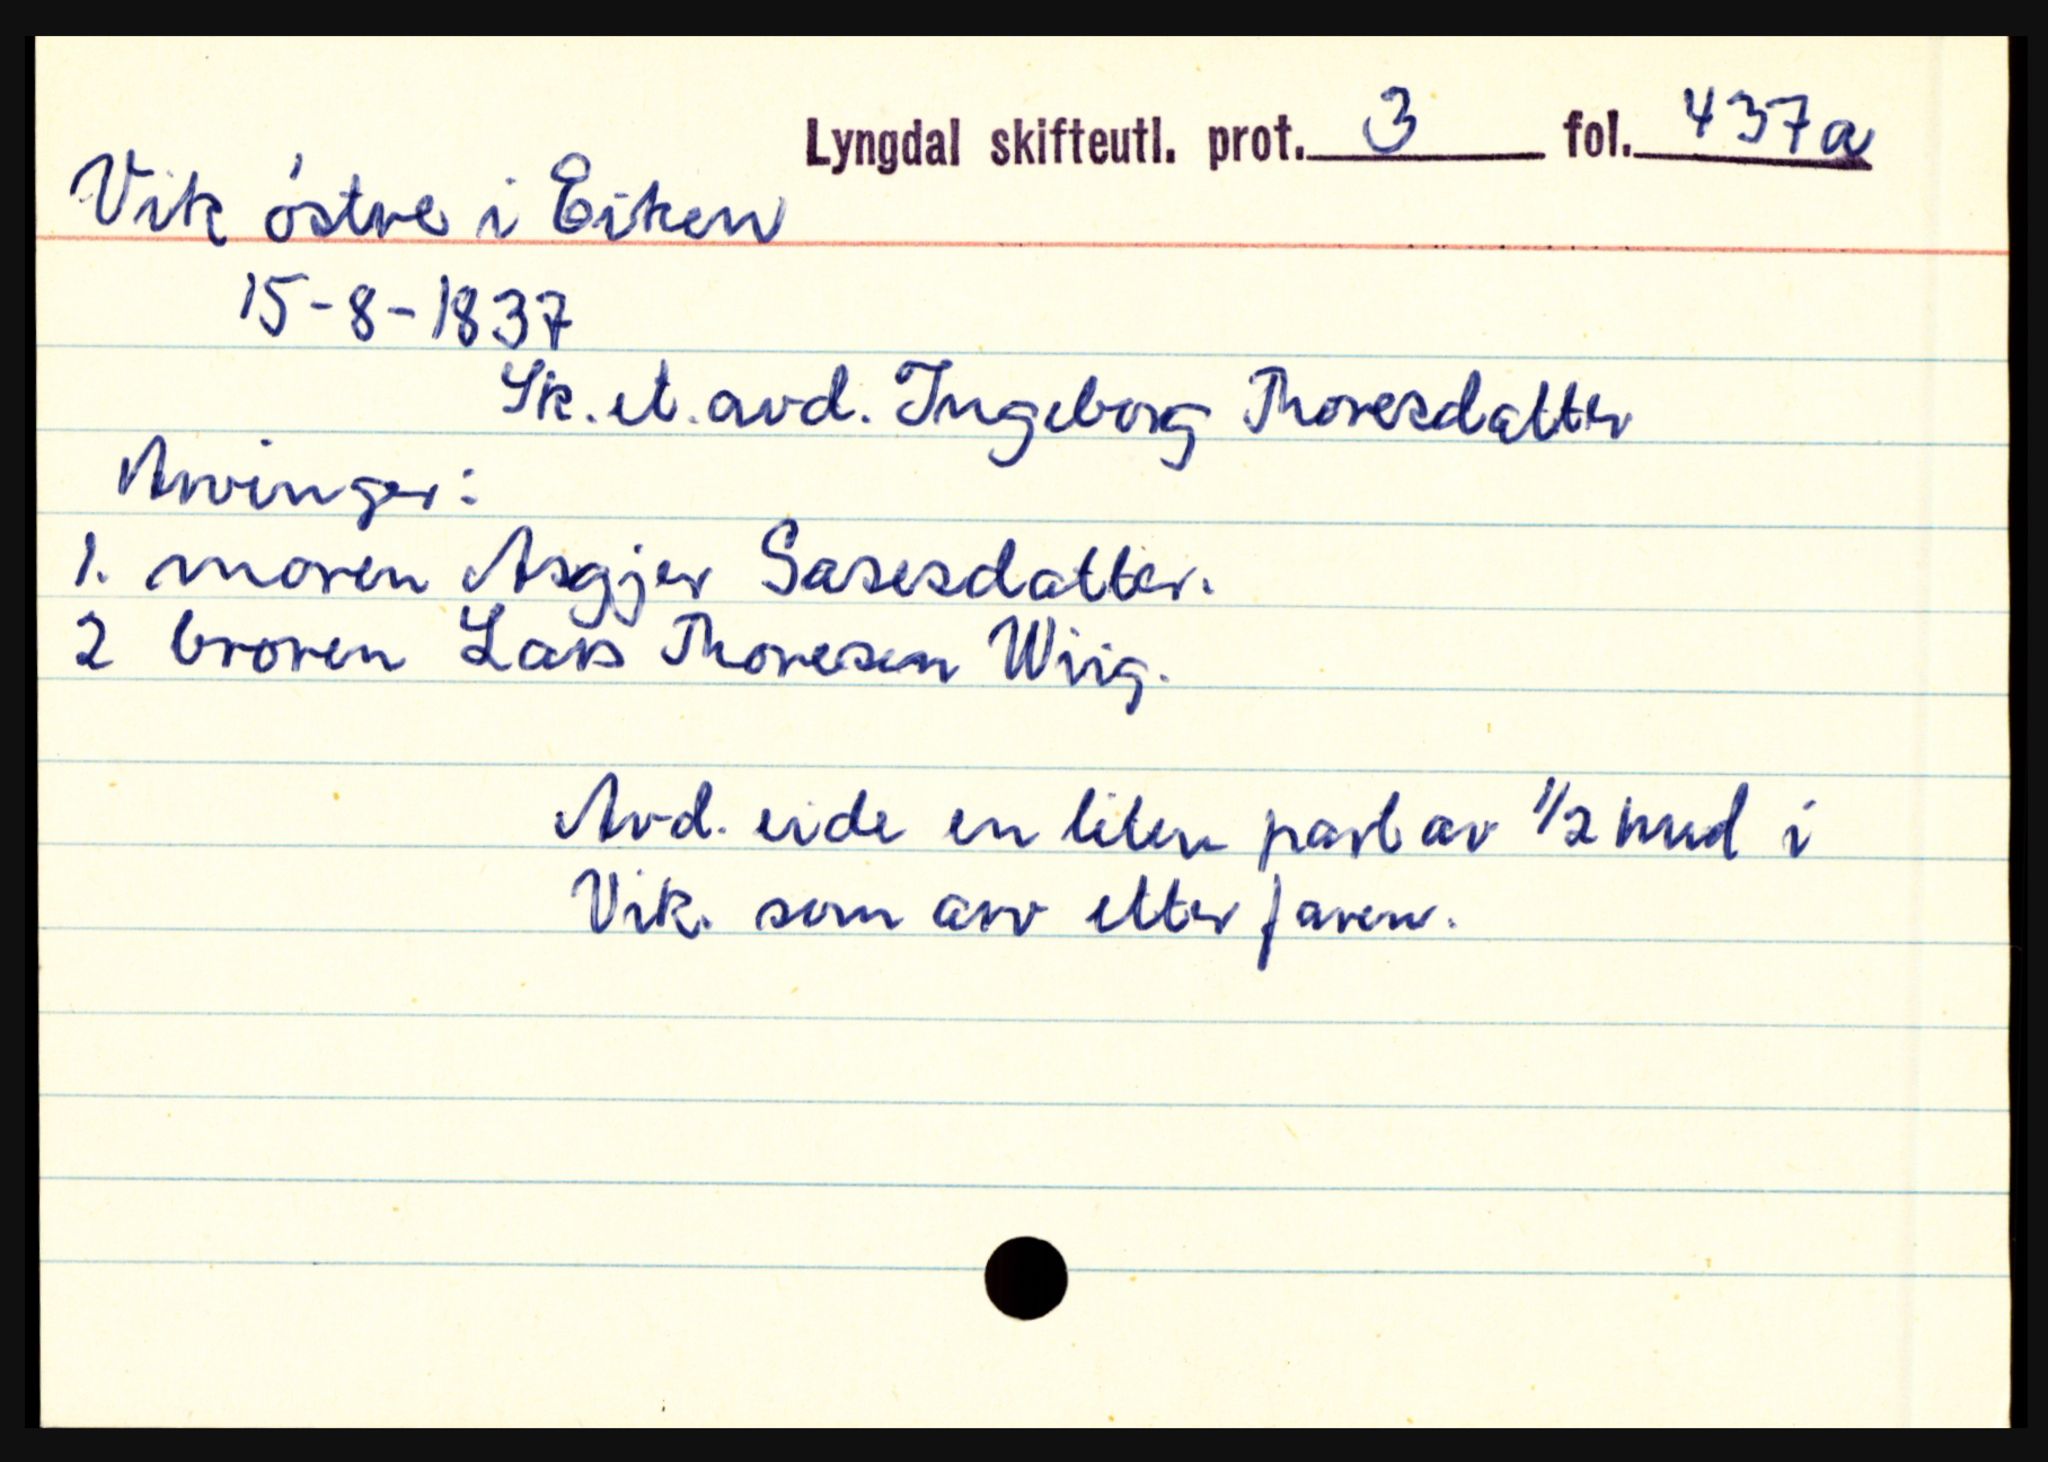 Lyngdal skifteutl. prot. 3 fol. 437a
Vik østre i Eiken
15-8-1837
Sk. et. avd. Ingeborg Thoresdatter
Arvinger:
1. moren Asgjer Sasesdatter.
2 broren Lars Thoresen Wiig.
Avd. eide en liten part av 1/2 hud i
Vik. som arv etter faren.